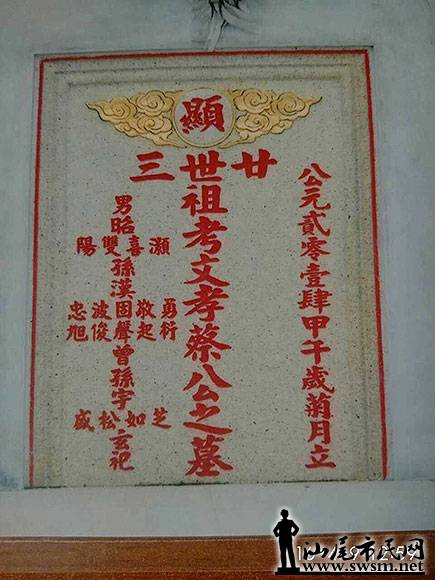 公元貳零壹肆甲午歲菊月立
顯
廿三
世祖考文孝蔡公之墓
男昭
灝喜雙陽
孫漢
勇敬固波忠
衍起聲俊旭
曾孫宇
芝如松盛
玄祀
汕尾市民网
www.swsm.net